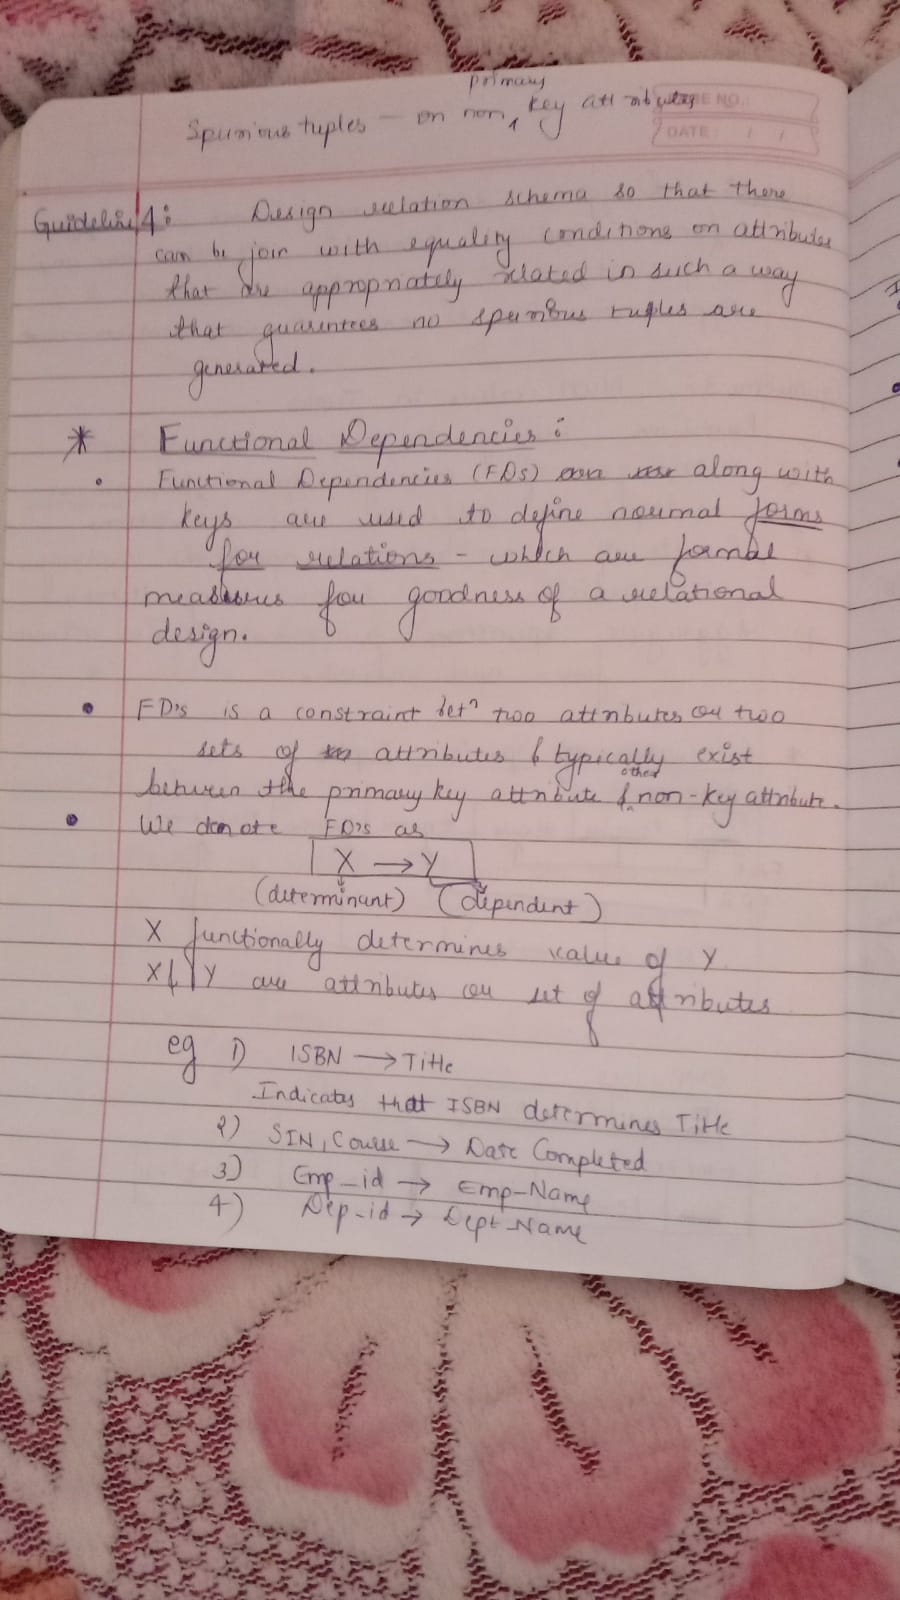 primary
Spurious tuples – on non ^ key attributes
PAGE NO.:
DATE: / /
Guideline 4: Design relation schema so that there
can be join with equality conditions on attributes
that are appropriately related in such a way
that guarentees no spurious tuples are
generated.
* Functional Dependencies:
• Functional Dependencies (FDs) along with
keys are used to define normal forms
for relations – which are formal
measures for goodness of a relational
design.
• FD's is a constraint betn two attributes or two
sets of attributes & typically exist
other
between the primary key attribute & non-key attribute.
• We denote FD's as
X → Y
(determinant) (dependent)
X functionally determines value of Y
X & Y are attributes or set of attributes
eg 1) ISBN → Title
Indicates that ISBN determines Title
2) SIN, Course → Date Completed
3) Emp_id → Emp-Name
4) Dep-id → Dept-Name